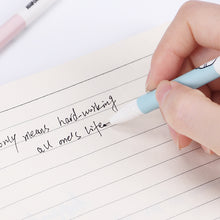 only means hard-working
all one's life